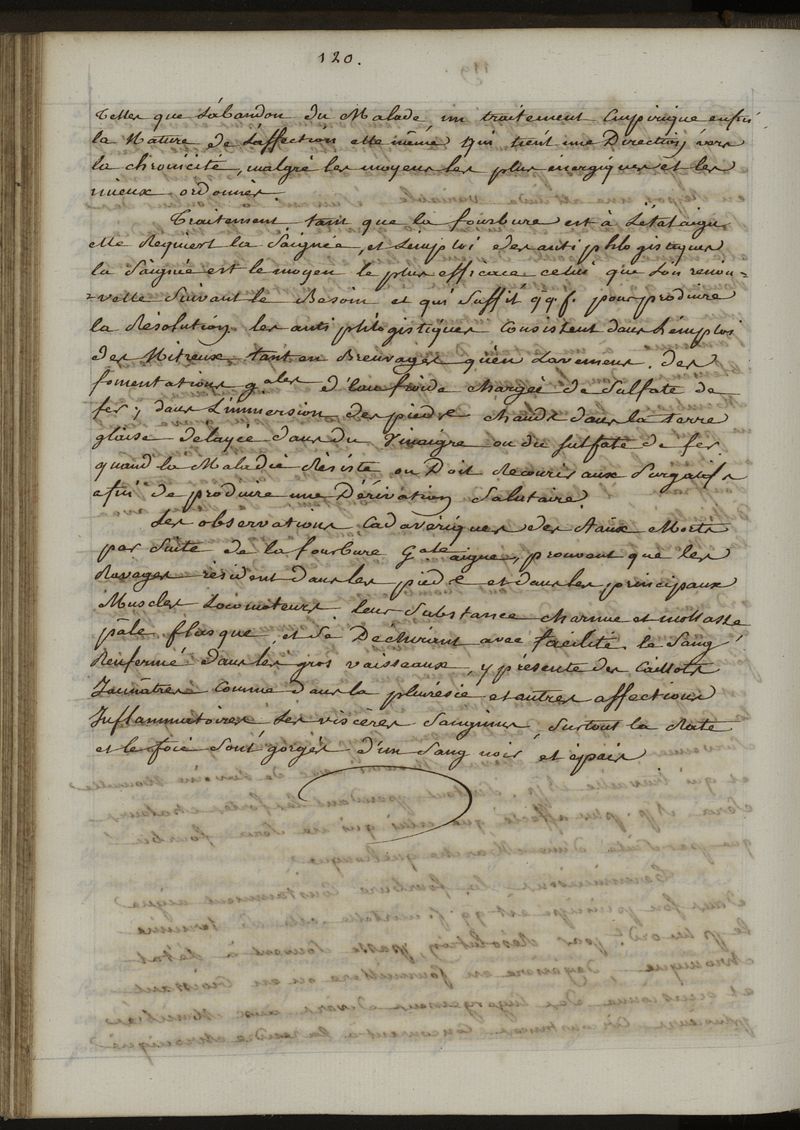 120.
telles que l'abandon du Malade, un traitement Empirique enfin
la Nature de l'affection elle même qui tient une Direction vers
la chronicité, malgré les moyens les plus énergiques et les
mieux ordonnés.
Traitement, tant que la fourbure est à l'état aigu
elle Requiert la Saignée, et l'emploi des anti phlogistiques
la Saignée est le moyen le plus efficace celui que l'on renou-
-velle Suivant le Besoin et qui Suffit qq. f. pour produire
la Résolution, les anti phlogistiques Consistent dans l'emploi
des Nitreux tant en Breuvages qu'en Lavemens. des
fomentations gales d'eau froide chargée de Sulfate de
fer; dans l'immersion des pieds chauds dans la terre
glaise délayée dans du vinaigre ou du sulfate de fer.
quand la Maladie Résiste on Doit Recourir aux Purgatifs
afin de produire une Dérivation Salutaire.
Les observations Cadavériques des Aaux Morts
par Suite de la fourbure Gale aigue, prouvent que les
Ravages résident dans les pieds et dans les principaux
Muscles Locomoteurs leur Substance charnue et mollasse
pâle, flasque, et Se Déchirant avec facilité. le Sang
Renfermé dans les gros vaisseaux, y présente des Caillots
Jaunâtres Comme dans la pleurésie et autres affections
Inflammatoires les viscères Sanguins, Surtout la Rate
et le foie Sont gorgés d'un Sang noir et épais